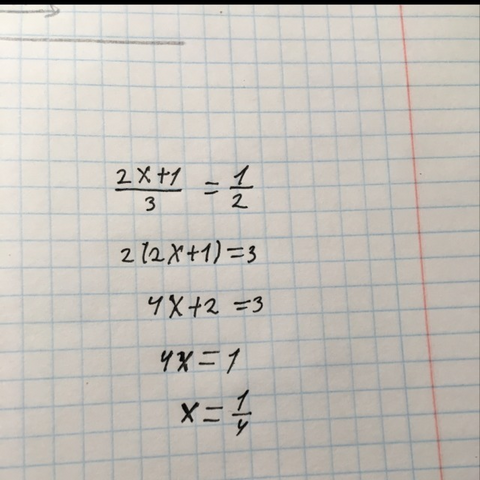 (2x+1)/3 = 1/2
2(2x+1)=3
4x+2=3
4x=1
x=1/4